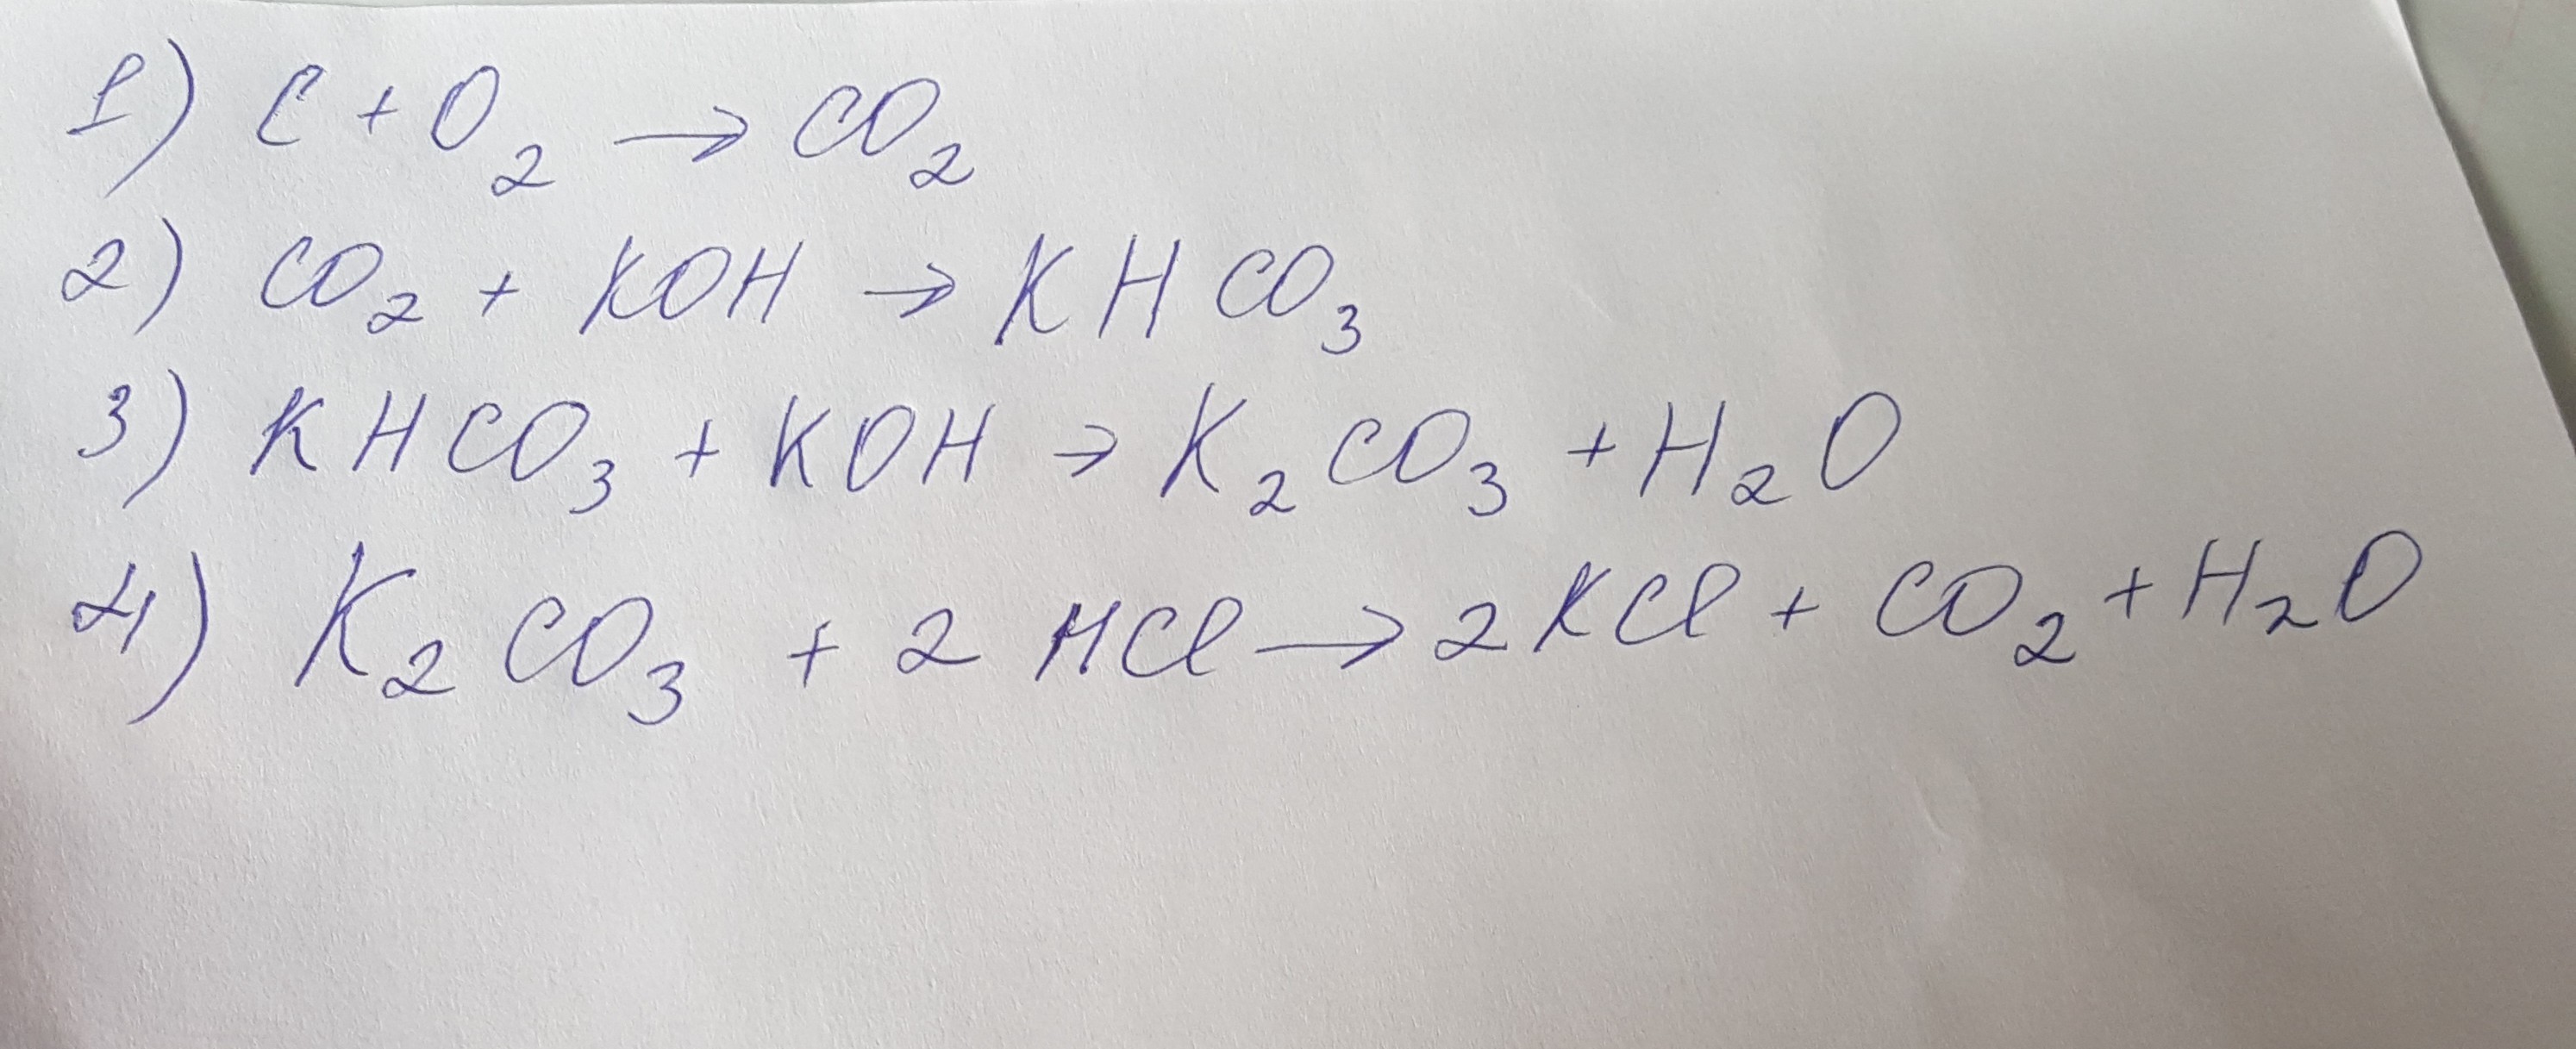 1) C + O₂ → CO₂
2) CO₂ + KOH → KHCO₃
3) KHCO₃ + KOH → K₂CO₃ + H₂O
4) K₂CO₃ + 2 HCl → 2 KCl + CO₂ + H₂O